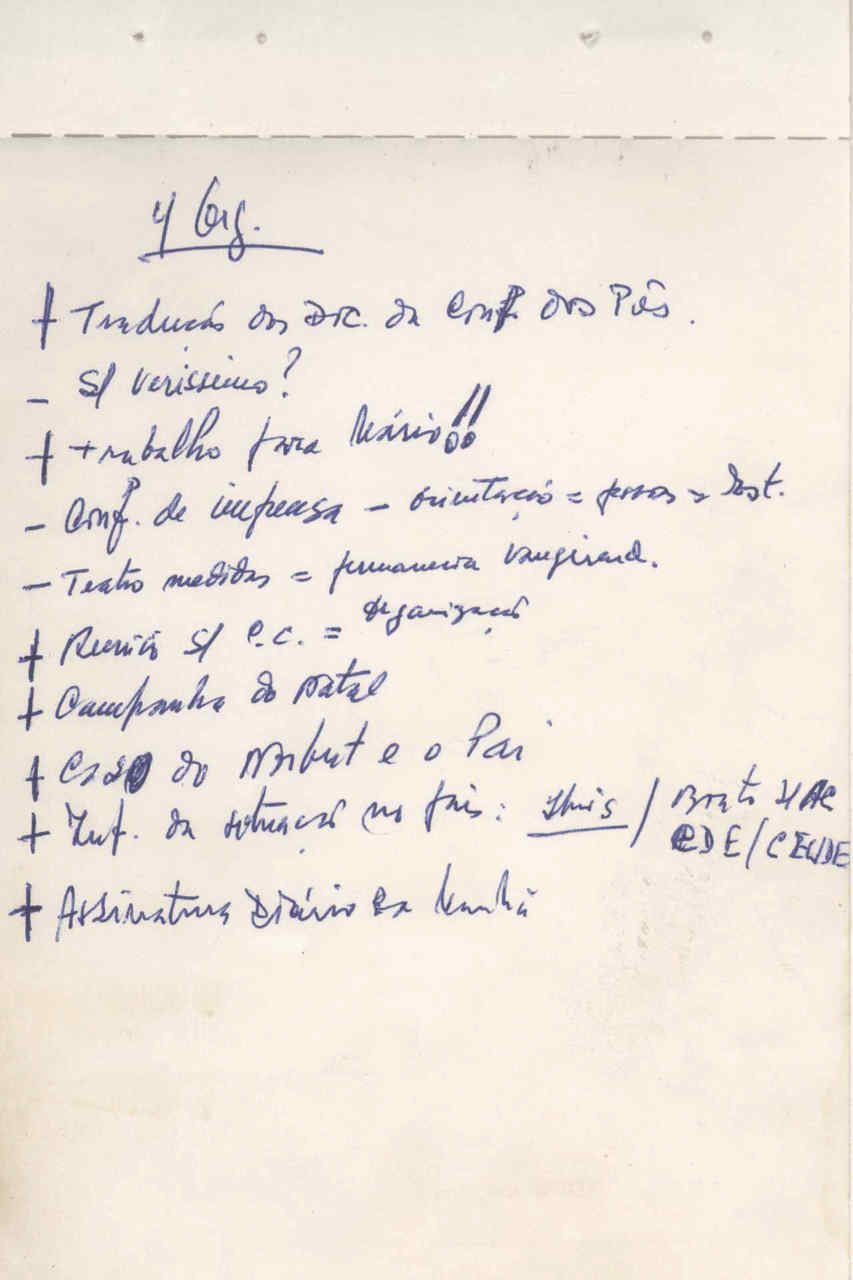 4 Org.
+ Tradução dos Doc. da Conf. dos Pós.
- S/ Verissimo?
+ + trabalho para Mário!!
- Conf. de imprensa - orientação =
- Teatro medidas = permanencia
+ Reunião S/ C.C. = Organização
+ Campanha do Natal
+ Caso do Norbut e o Pai
+ Inf. da situação no país: / CDE/CEUDE
+ Assinatura Diário da Manhã